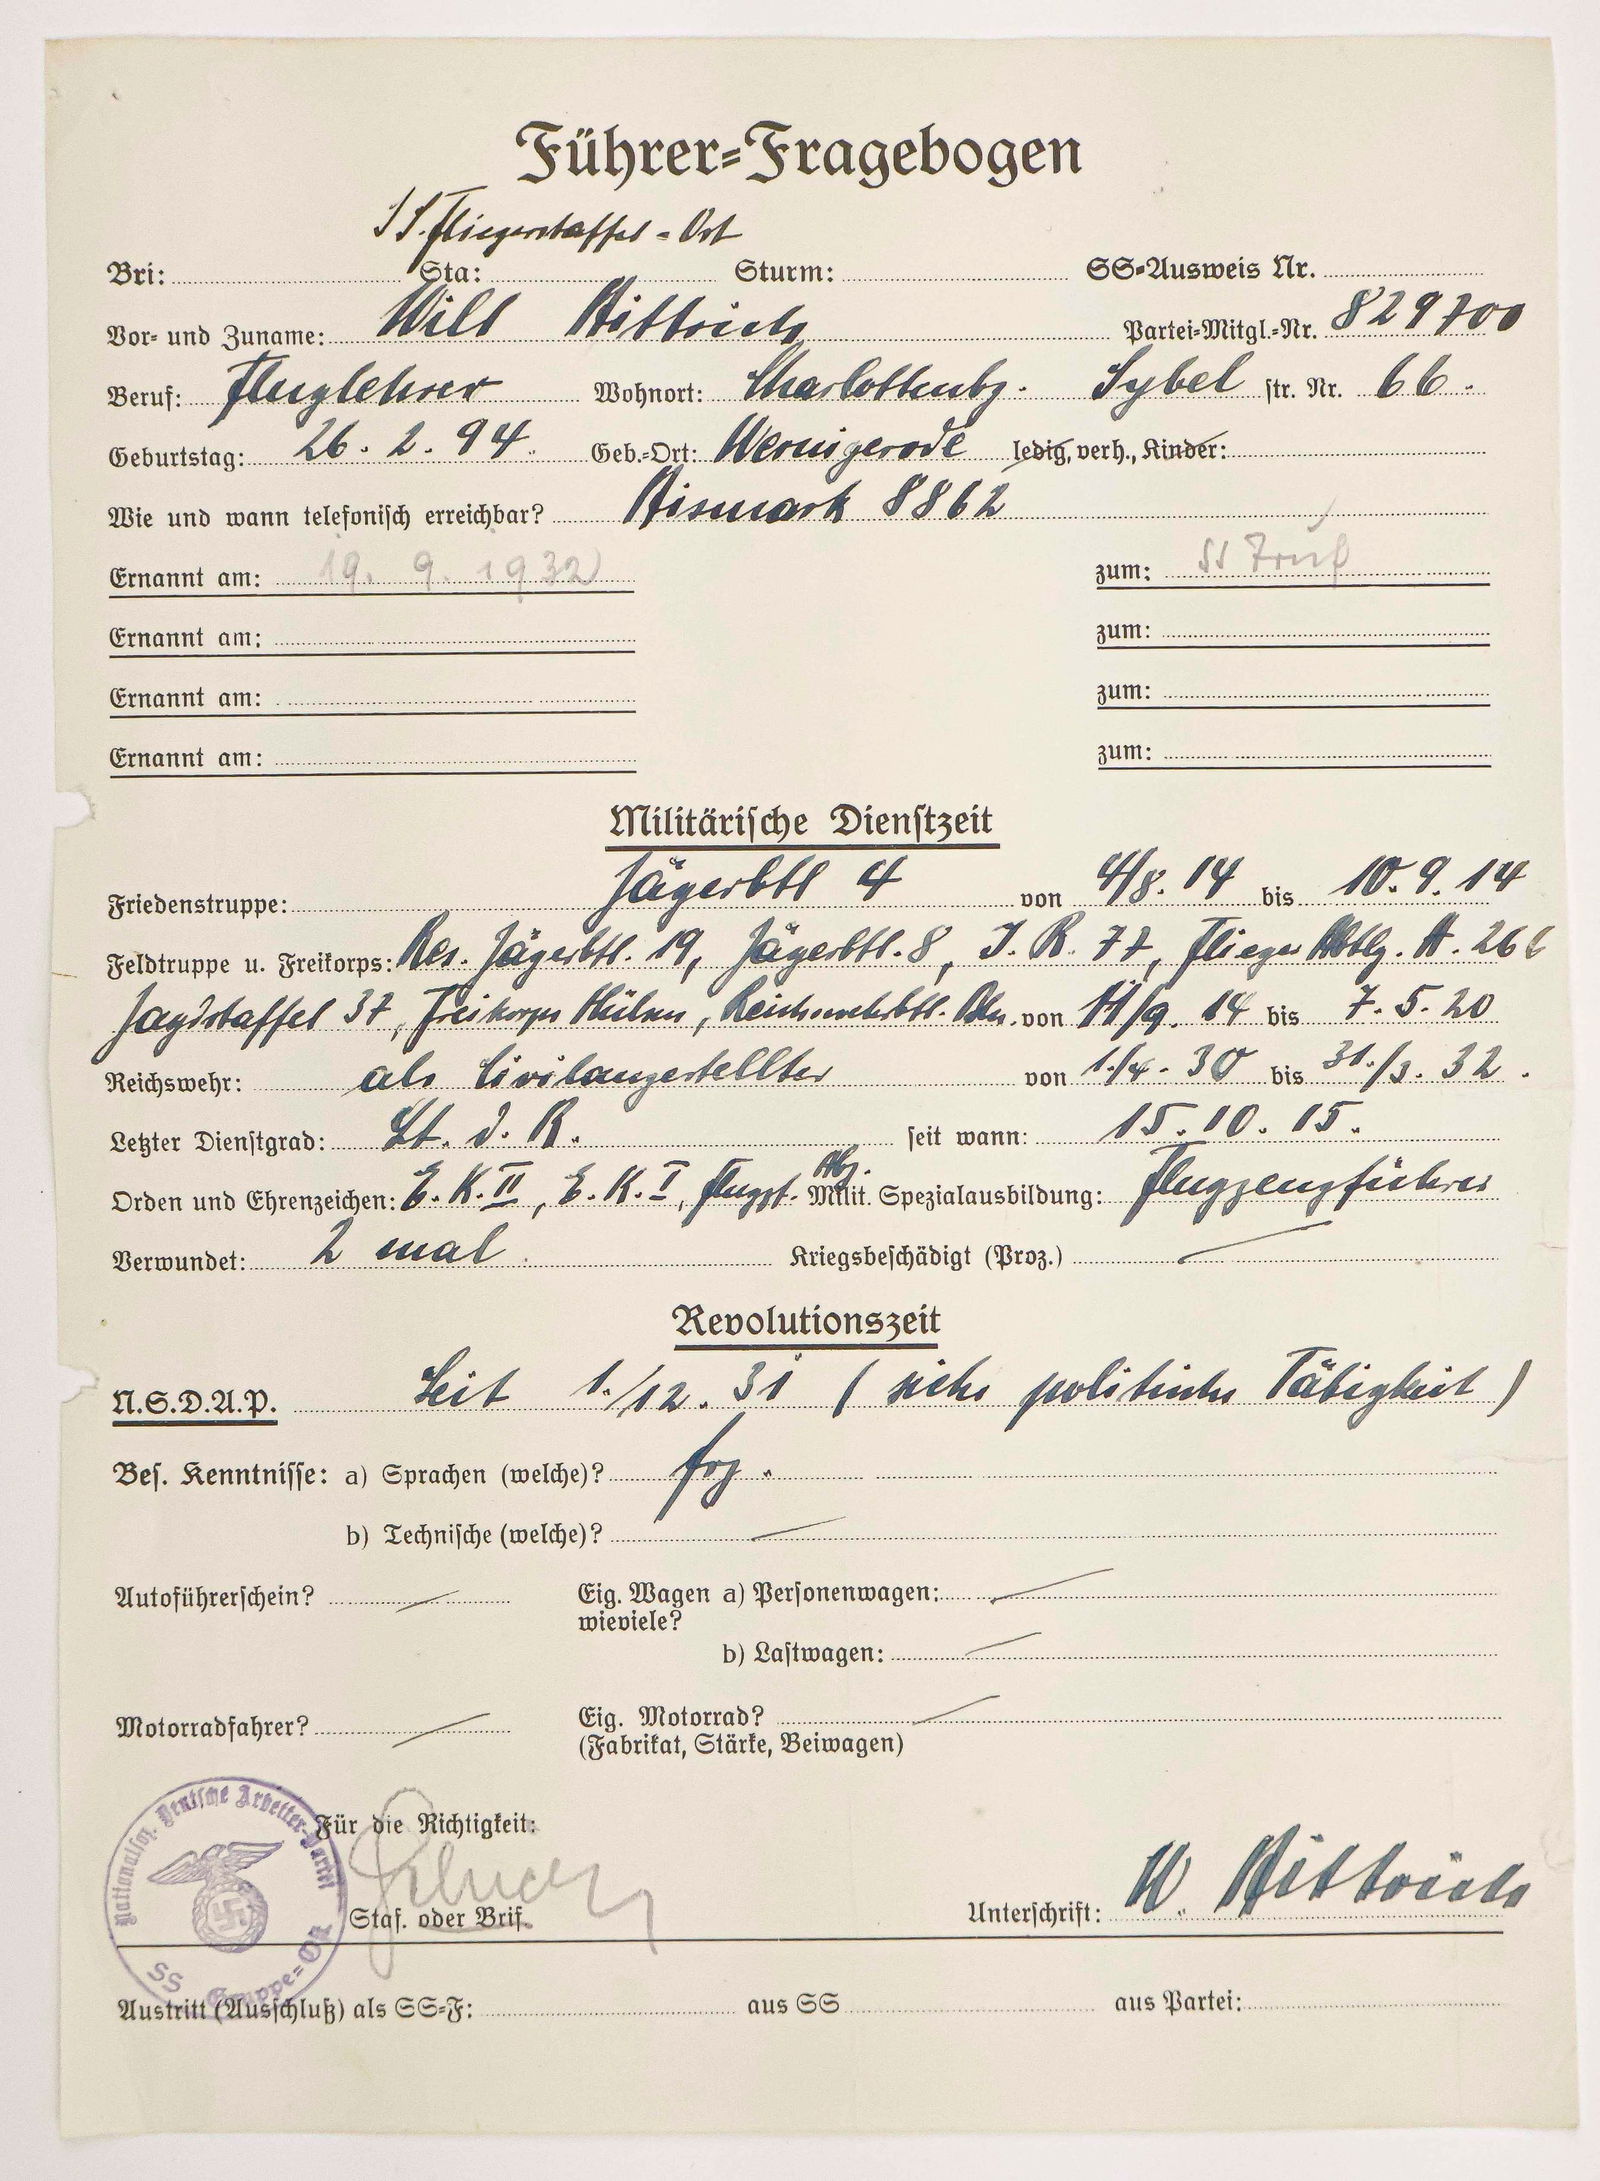 Führer=Fragebogen
SS. Fliegerstaffel = Ost
Bri: Sta: Sturm: SS=Ausweis Nr.
Vor= und Zuname: Willi Bittrich Partei=Mitgl.=Nr. 829700
Beruf: Fluglehrer Wohnort: Charlottenbg. Sybel str. Nr. 66.
Geburtstag: 26. 2. 94. Geb.=Ort: Wernigerode ledig, verh., Kinder:
Wie und wann telefonisch erreichbar? Bismark 8862
Ernannt am: 19. 9. 1932 zum: SS Truf
Ernannt am: zum:
Ernannt am: zum:
Ernannt am: zum:
Militärische Dienstzeit
Friedenstruppe: Jägerbtl 4 von 4/8. 14 bis 10. 9. 14
Feldtruppe u. Freikorps: Res. Jägerbtl. 19, Jägerbtl. 8, J. R. 77, Flieger Abtlg. A. 266
Jagdstaffel 37, Freikorps Hülsen, Reichswehrbtl. von 11/9. 14 bis 7. 5. 20
Reichswehr: als Civilangestellter von 1./4. 30 bis 31./3. 32.
Letzter Dienstgrad: Lt. d. R. seit wann: 15. 10. 15.
Orden und Ehrenzeichen: E. K. II, E. K. I, Flugzt. Abz. Milit. Spezialausbildung: Flugzeugführer
Verwundet: 2 mal Kriegsbeschädigt (Proz.) —
Revolutionszeit
N.S.D.A.P. Seit 1./12. 31 (siehe politische Tätigkeit)
Bes. Kenntnisse: a) Sprachen (welche)? frz.
b) Technische (welche)? —
Autoführerschein? — Eig. Wagen a) Personenwagen: —
wieviele?
b) Lastwagen: —
Motorradfahrer? — Eig. Motorrad? —
(Fabrikat, Stärke, Beiwagen)
Nationalsoz. Deutsche Arbeiter-Partei
SS Gruppe=Ost
Für die Richtigkeit:
Staf. oder Brif. Unterschrift: W. Bittrich
Austritt (Ausschluß) als SS=F: aus SS aus Partei: